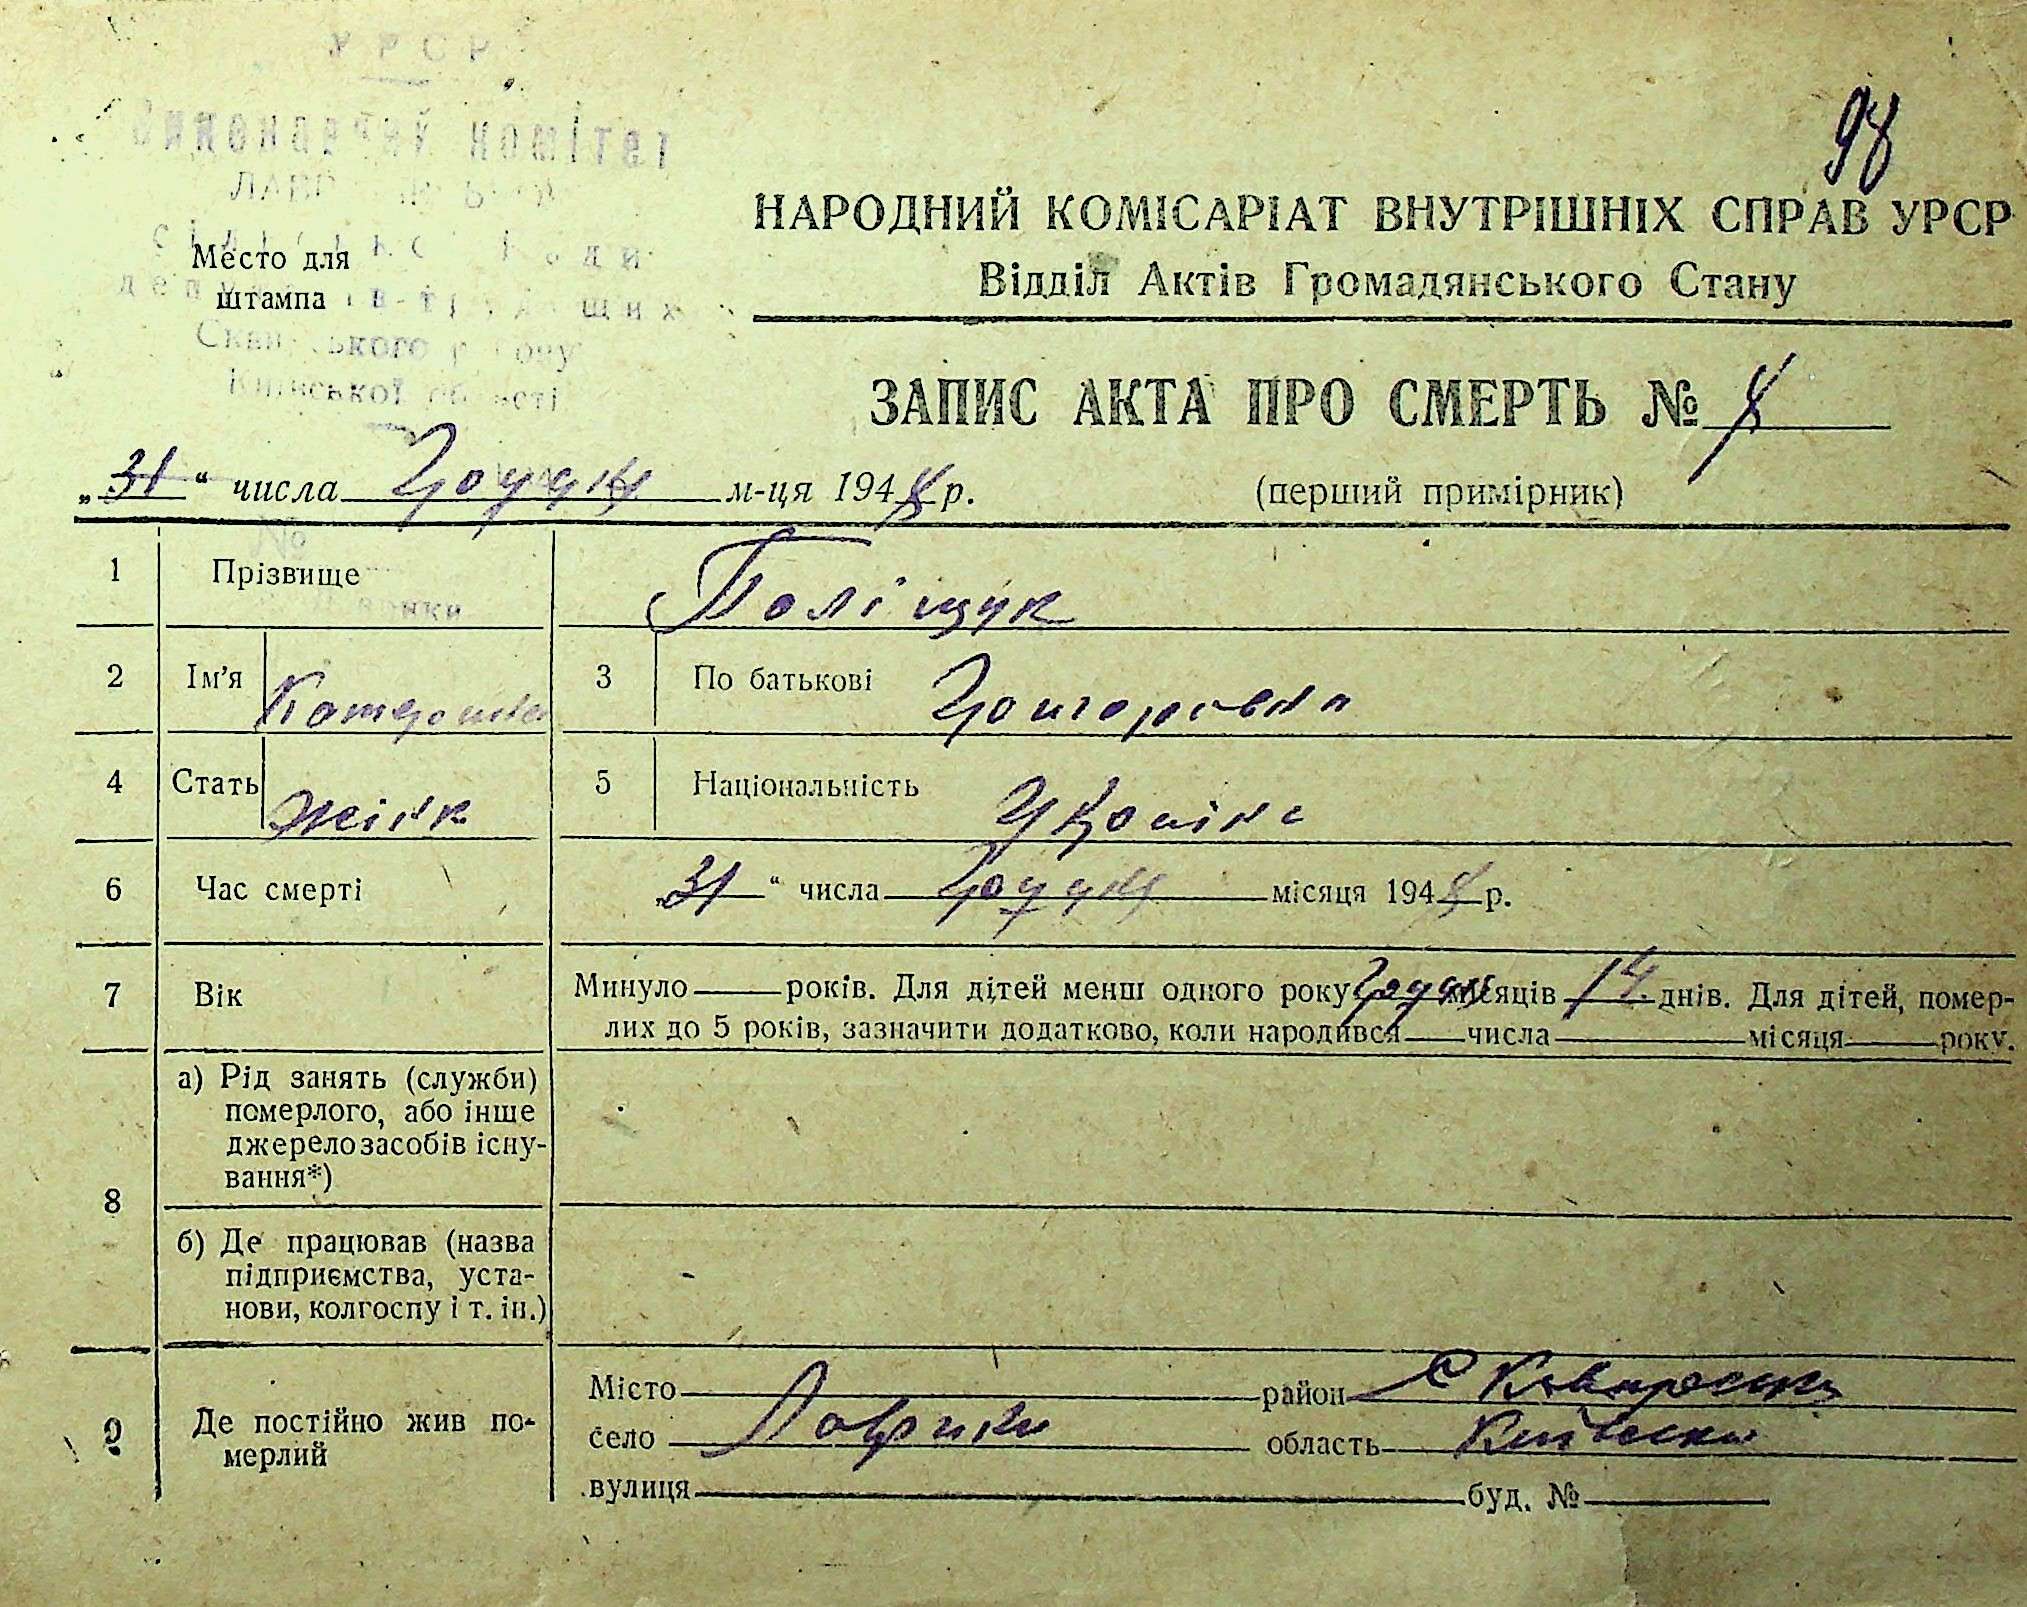 УРСР
Виконавчий комітет
98
НАРОДНИЙ КОМІСАРІАТ ВНУТРІШНІХ СПРАВ УРСР
Место для
штампа
Відділ Актів Громадянського Стану
Київської області
ЗАПИС АКТА ПРО СМЕРТЬ № 8
„31“ числа Грудня м-ця 1948 р.
(перший примірник)
1 Прізвище Поліщук
2 Ім’я Катерина 3 По батькові Григоровна
4 Стать жінк 5 Національність Україн
6 Час смерті „31“ числа Грудня місяця 1948 р.
7 Вік Минуло років. Для дітей менш одного року Грудня місяців 14 днів. Для дітей, помер-
лих до 5 років, зазначити додатково, коли народився числа місяця року.
8 а) Рід занять (служби)
померлого, або інше
джерело засобів існу-
вання*)
б) Де працював (назва
підприємства, уста-
нови, колгоспу і т. ін.)
9 Де постійно жив по-
мерлий
Місто район
село Лаврики область Київська
вулиця буд. №